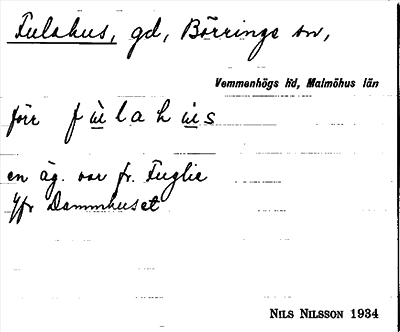 Fulahus, gd, Börringe sn,
Vemmenhögs hd, Malmöhus län
förr fùlahùs
en äg. var fr. Fuglie
Jfr Dammhuset
NILS NILSSON 1934